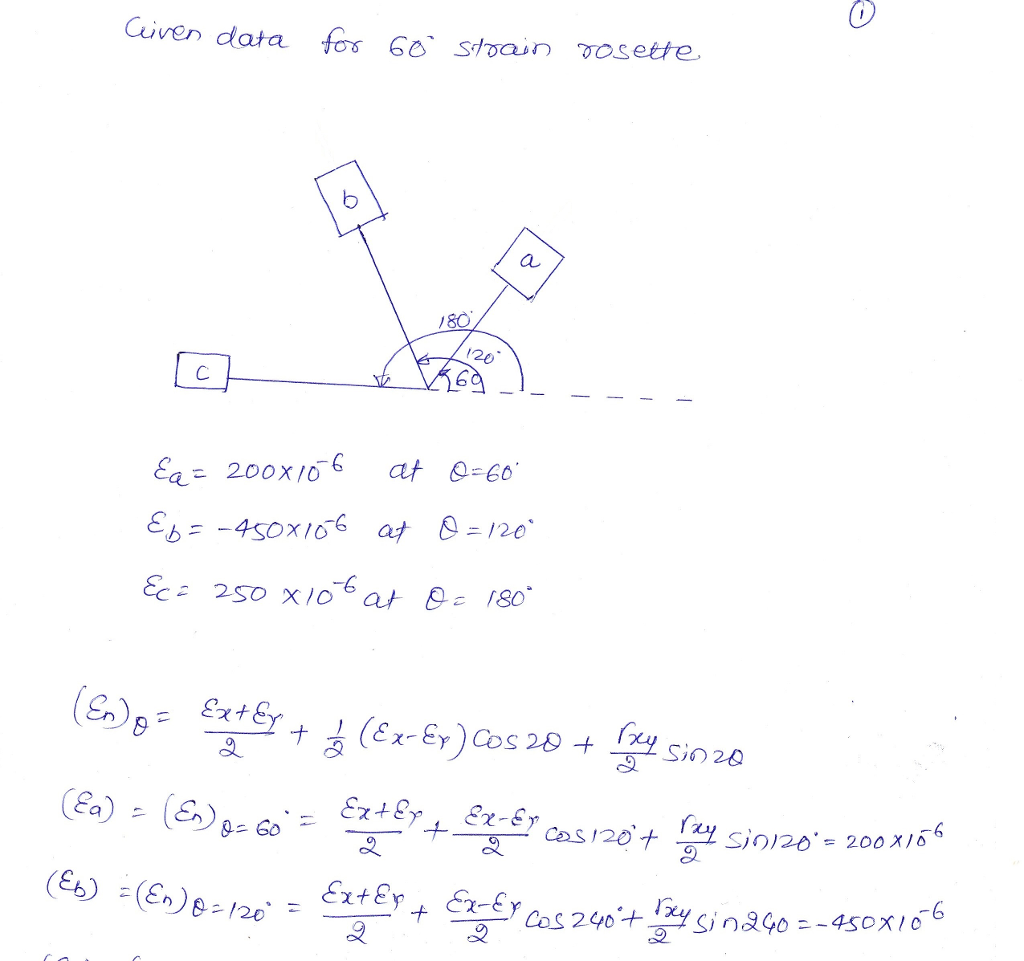 ①
Given data for 60° strain rosette
b
a
180°
120°
60
c
Ea = 200x10^-6 at θ=60°
Eb = -450x10^-6 at θ=120°
Ec = 250 x10^-6 at θ= 180°
(En)θ = (Ex+Ey)/2 + 1/2 (Ex-Ey) Cos 2θ + rxy/2 Sin2θ
(Ea) = (En)θ=60° = (Ex+Ey)/2 + (Ex-Ey)/2 cos120° + rxy/2 sin120° = 200x10^-6
(Eb) = (En)θ=120° = (Ex+Ey)/2 + (Ex-Ey)/2 Cos 240° + rxy/2 sin240 = -450x10^-6